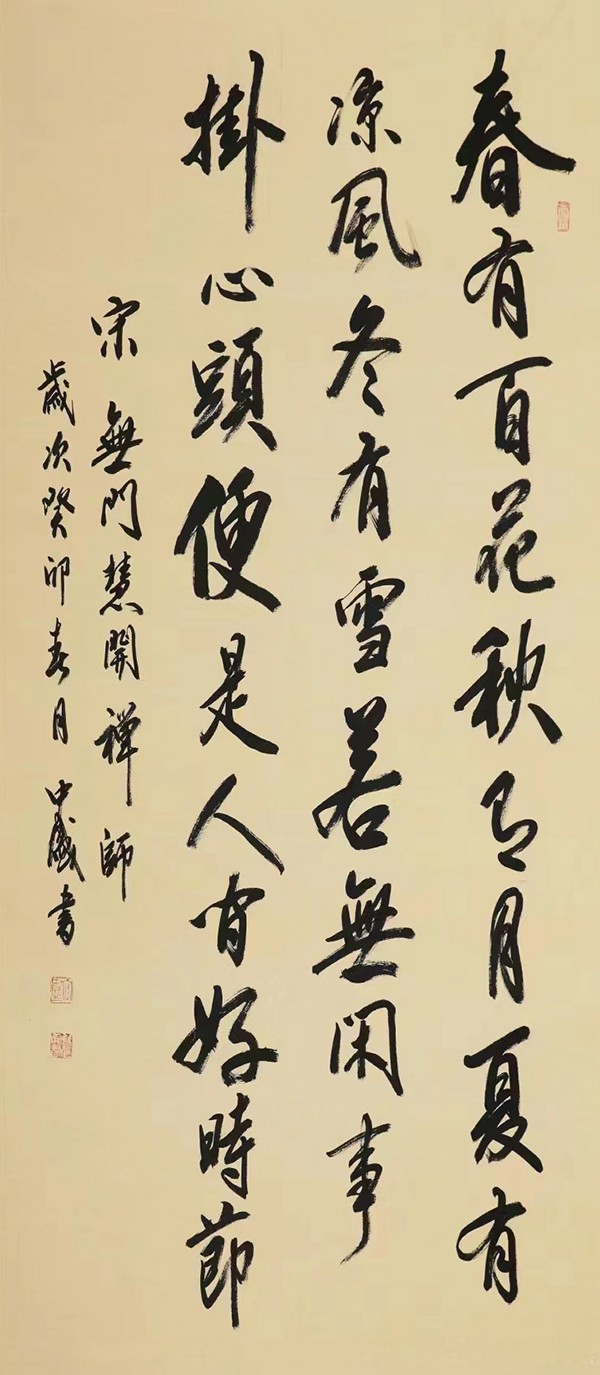 春有百花秋有月夏有
凉風冬有雪若無閑事
掛心頭便是人間好時節
宋無門慧開禪師
歲次癸卯春月中書